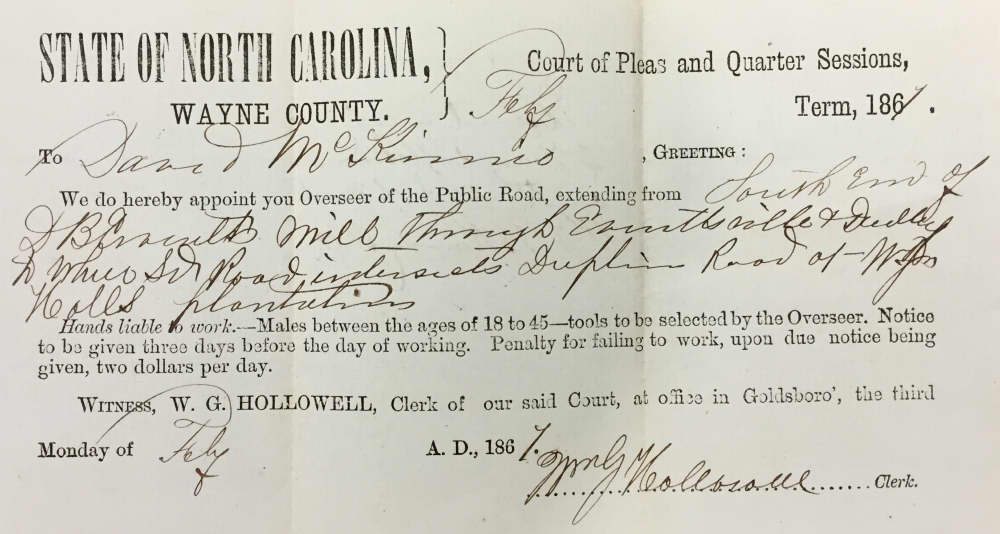 STATE OF NORTH CAROLINA,
WAYNE COUNTY.
Court of Pleas and Quarter Sessions,
Feby Term, 1867.
To David McKinnie, GREETING:
We do hereby appoint you Overseer of the Public Road, extending from South End of
D B Everitts Mill through Everittsville & Dudley
to where Sd Road intersects Duplin Road at
Holls plantation
Hands liable to work.—Males between the ages of 18 to 45—tools to be selected by the Overseer. Notice
to be given three days before the day of working. Penalty for failing to work, upon due notice being
given, two dollars per day.
WITNESS, W. G. HOLLOWELL, Clerk of our said Court, at office in Goldsboro', the third
Monday of Feby A. D., 1867.
Wm G Hollowell Clerk.